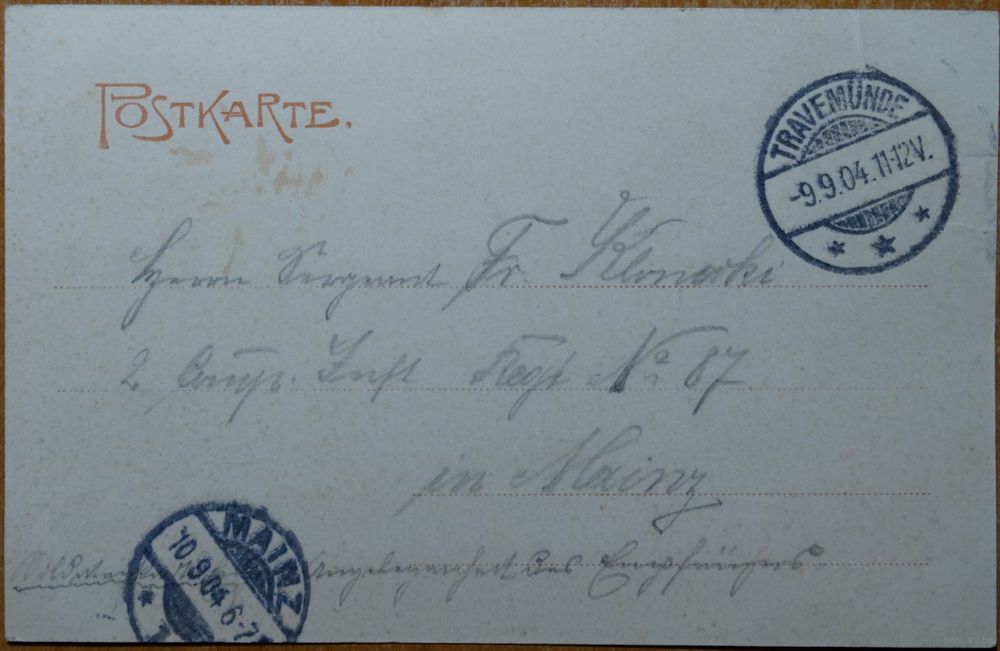 POSTKARTE.
TRAVEMÜNDE
-9.9.04.11-12V.
Herrn Sergeant Fr. Klonarki
2 Comp. Inft Regt No 87
in Mainz
MAINZ
10.9.04 6-7
1
Angelegenheit des Empfängers